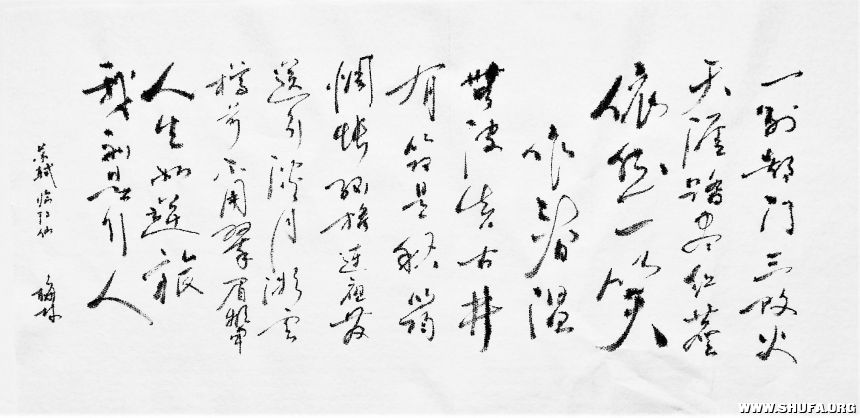 一别都门三改火
天涯踏尽红尘
依然一笑
作春温
無波真古井
有节是秋筠
惆怅孤帆连夜发
送行淡月微云
樽前不用翠眉颦
人生如逆旅
我亦是行人
苏轼临江仙
WWW.SHUFA.ORG